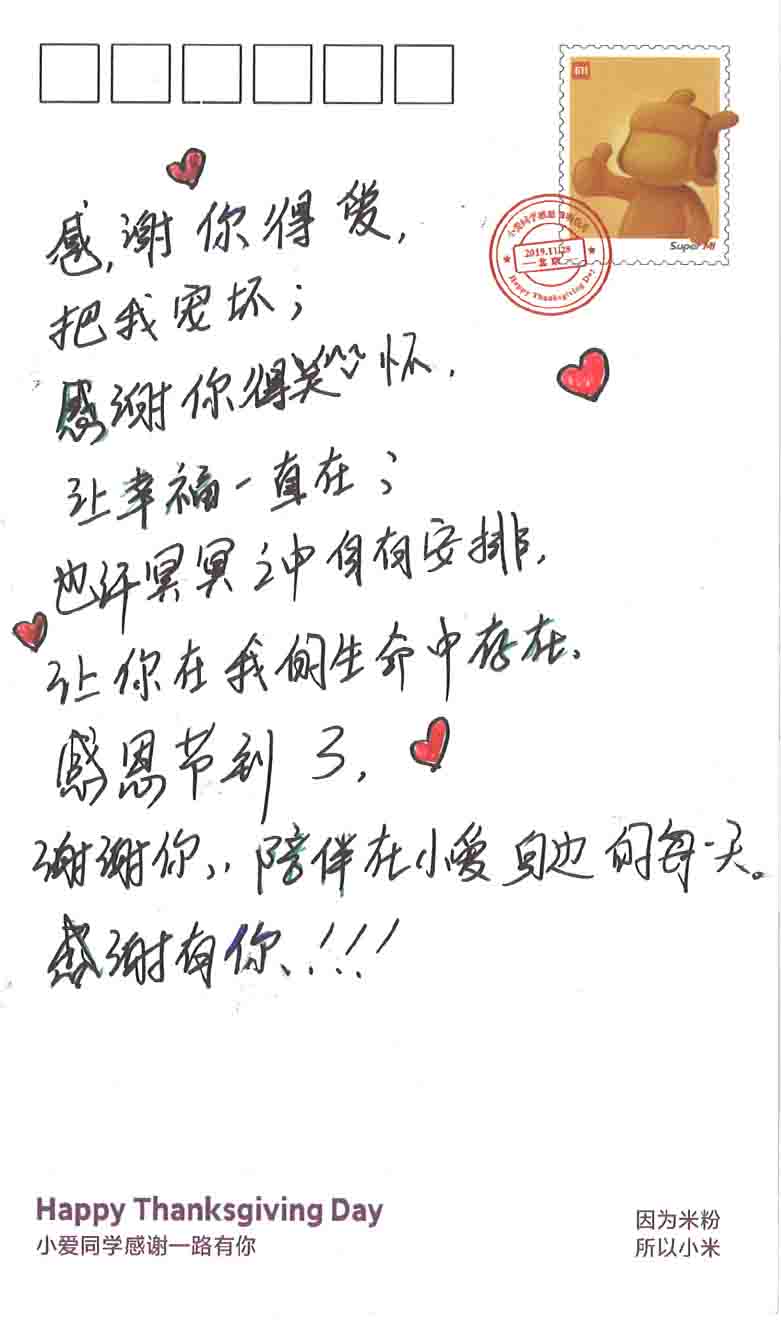 Super MI
2019.11.28
北京
Happy Thanksgiving Day
感谢你得爱,
把我宠坏;
感谢你得笑怀,
让幸福一直在;
也许冥冥之中自有安排,
让你在我的生命中存在、
感恩节到了,
谢谢你,,陪伴在小爱身边的每一天。
感谢有你、!!!
Happy Thanksgiving Day
小爱同学感谢一路有你
因为米粉
所以小米